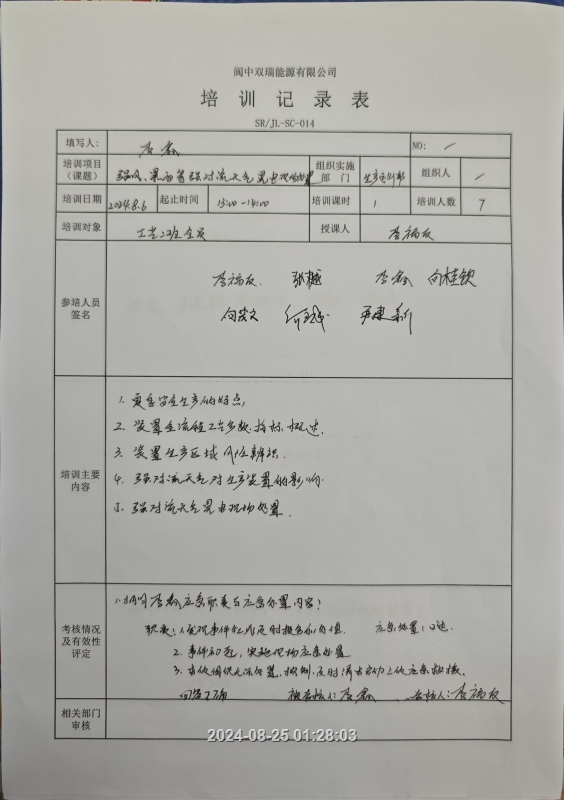 阆中双瑞能源有限公司
培训记录表
SR/JL-SC-014
填写人: 李鑫 NO: /
培训项目(课题) 强风、暴雨等强对流天气晃电现场处置 组织实施部门 生产运行部 组织人 /
培训日期 2024.8.6 起止时间 13:00-14:00 培训课时 1 培训人数 7
培训对象 工艺二班全员 授课人 李福友
参培人员签名 李福友 张越 李鑫 向桂钦
向茂文
培训主要内容
1. 夏季安全生产的特点,
2. 装置全流程工艺参数、指标、概述,
3. 装置生产区域风险辨识.
4. 强对流天气对生产装置的影响.
5. 强对流天气晃电现场处置.
考核情况及有效性评定
1. 提问李鑫应急职责与应急处置内容?
职责: 1.发现事件征兆及时报告和自值. 应急处置: 口述.
2. 事件初起, 实施现场应急处置
3. 及时 应急救援.
回答正确 被考核人: 李鑫 考核人: 李福友
相关部门审核
2024-08-25 01:28:03